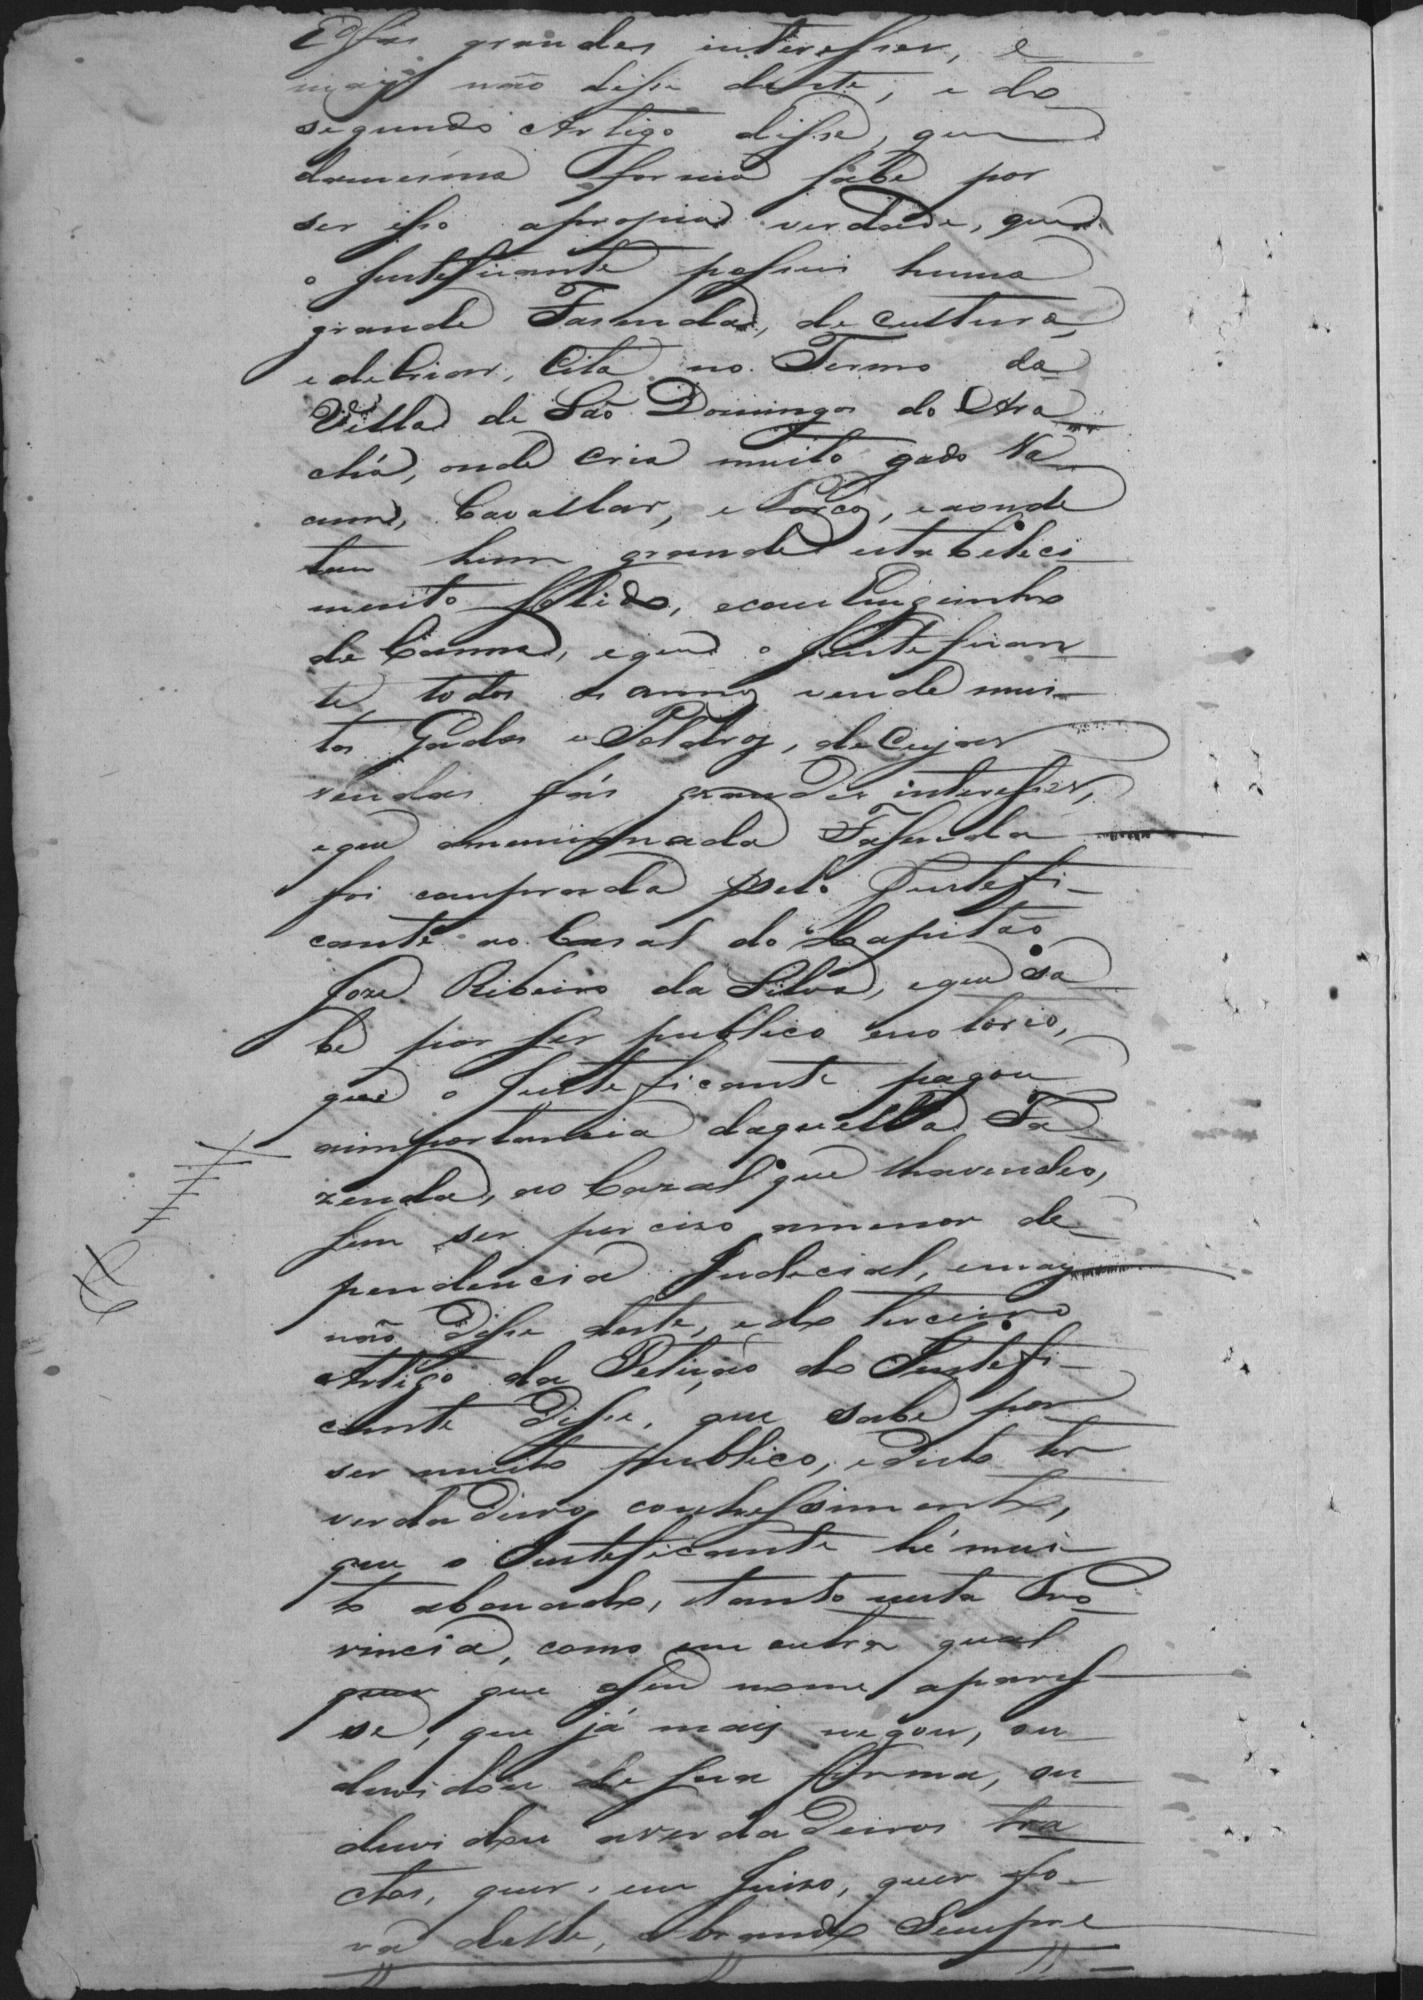 grandes interesses, e
mais não disse deste, e do
segundo Artigo disse, que
damesma forma sabe por
ser isso apropria verdade, que
o Justeficante possui huma
grande Fasenda, de cultura,
e deCriar, Cita no Termo da
Villa de São Domingos do Ara
chá, onde cria muito gado Va
cum, Cavallar, e Porcos, eaonde
tem hum grande estabeleci
mento solido, ecom Engenho
de Canna, eque o Justefican
te todos os annos vende mui
tos Gados e Poldros, deCujas
vendas fás grandes interesses,
eque amencionada Fasenda
foi comprada pelo Justefi
cante ao Casal do Capitão
Joze Ribeiro da Silva, eque sa
be por ser publico enotorio,
que o Justeficante pagou
aimportancia daquella Fa
zenda, ao Cazal que lhavendeo,
sem ser percizo amenor de
pendencia Judecial, emais
não disse deste, edo terceiro
Artigo da Petição do Justefi
cante disse, que sabe por
ser muito publico, edisto ter
verdadeiro conhessimento,
que o Justeficante hé mui
to abonado, tanto nesta Pro
vincia, como em outra qual
quer que oseu nome apares
se, que já mais negou, ou
duvidou de sua firma, ou
duvidou averdadeiros tra
ctos, quer em Juizo, quer fo
ra delle, obrando Sempre